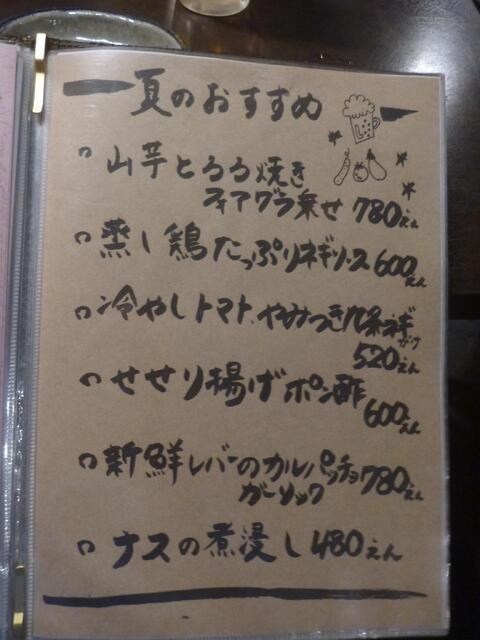 夏のおすすめ
山芋とろろ焼き
フィアグラ乗せ 780えん
蒸し鶏たっぷりネギソース 600えん
冷やしトマト、やみつき九条ネギ
がけ
520えん
せせり揚げポン酢
600えん
新鮮レバーのカルパッチョ 780えん
ガーリック
ナスの煮浸し 480えん